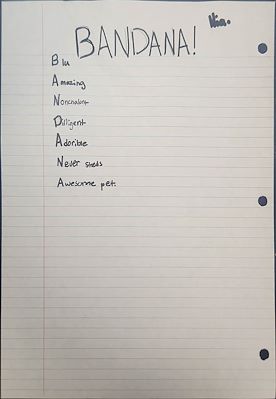 Nia.
BANDANA!
Blu
Amazing
Nonchalant
Diligent
Adorible
Never sheds
Awesome pet.